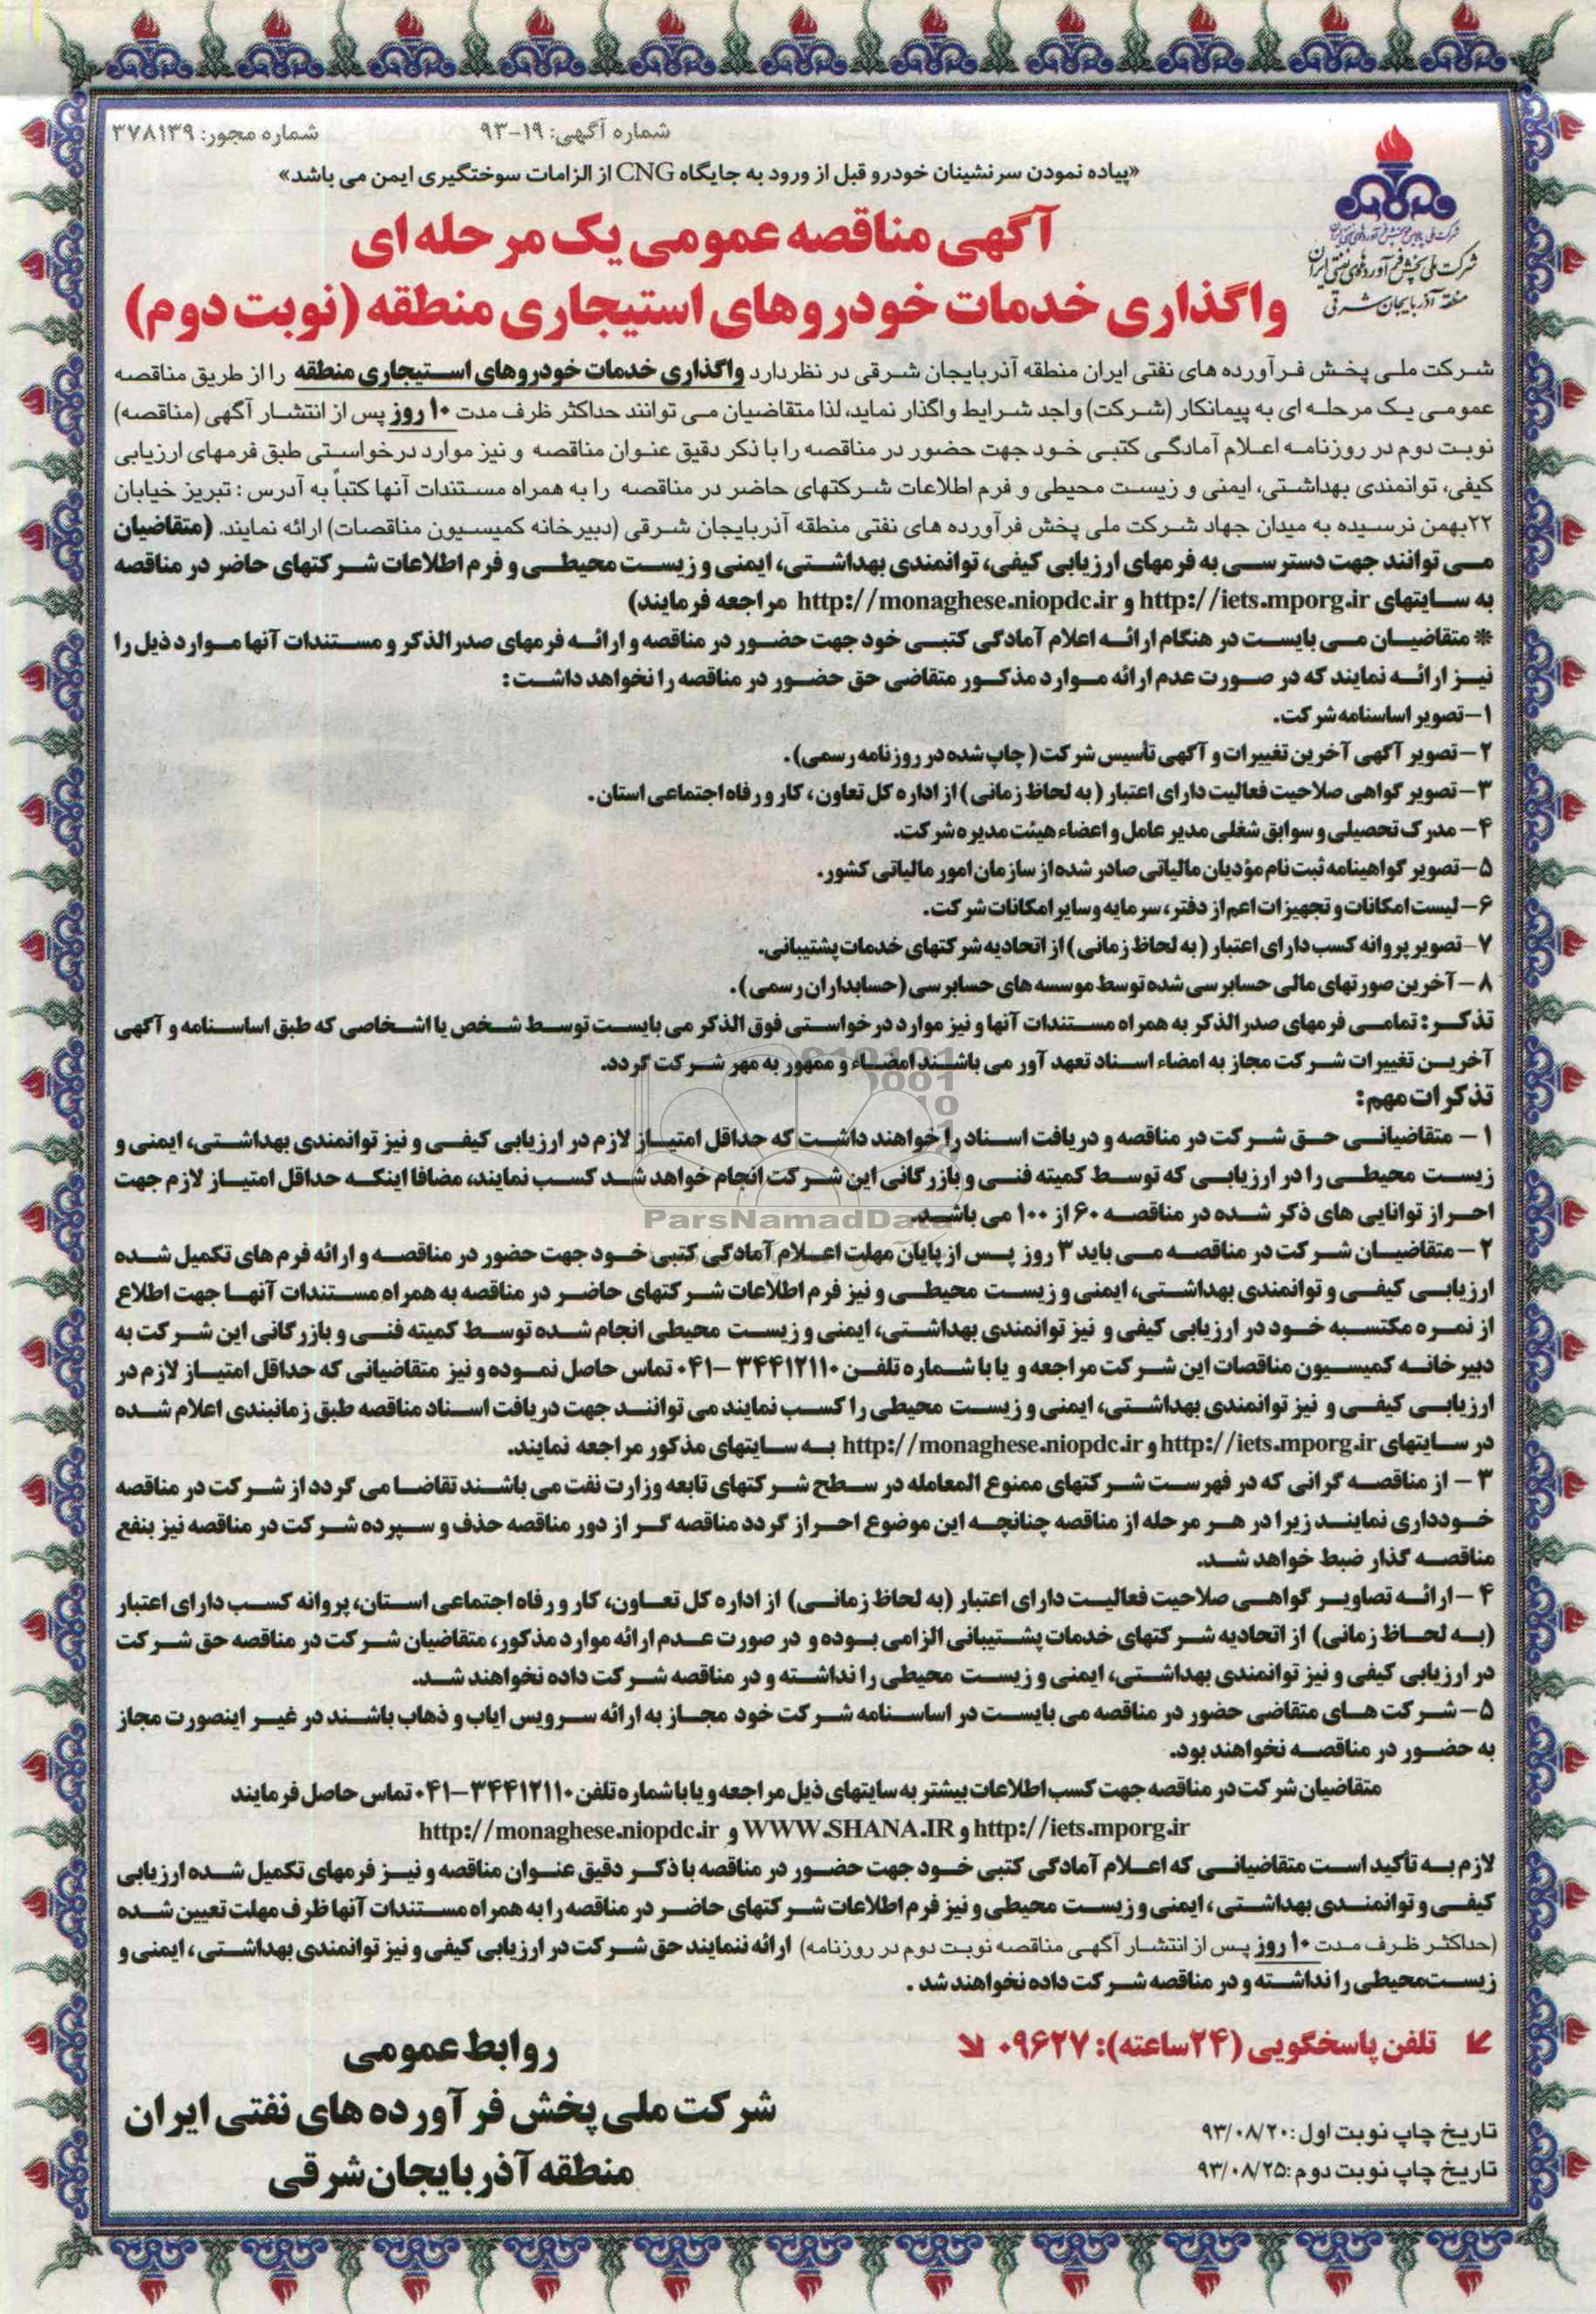 شماره آگهی: ۱۹-۹۳
شماره مجوز: ۳۷۸۱۳۹
«پیاده نمودن سرنشینان خودرو قبل از ورود به جایگاه CNG از الزامات سوختگیری ایمن می باشد»
شرکت ملی پالایش و پخش فرآورده‌های نفتی ایران
شرکت ملی پخش فرآورده‌های نفتی ایران
منطقه آذربایجان شرقی
آگهی مناقصه عمومی یک مرحله ای
واگذاری خدمات خودروهای استیجاری منطقه (نوبت دوم)
شرکت ملی پخش فرآورده های نفتی ایران منطقه آذربایجان شرقی در نظر دارد واگذاری خدمات خودروهای استیجاری منطقه را از طریق مناقصه
عمومی یک مرحله ای به پیمانکار (شرکت) واجد شرایط واگذار نماید، لذا متقاضیان می توانند حداکثر ظرف مدت ۱۰ روز پس از انتشار آگهی (مناقصه)
نوبت دوم در روزنامه اعلام آمادگی کتبی خود جهت حضور در مناقصه را با ذکر دقیق عنوان مناقصه و نیز موارد درخواستی طبق فرمهای ارزیابی
کیفی، توانمندی بهداشتی، ایمنی و زیست محیطی و فرم اطلاعات شرکتهای حاضر در مناقصه را به همراه مستندات آنها کتباً به آدرس : تبریز خیابان
۲۲بهمن نرسیده به میدان جهاد شرکت ملی پخش فرآورده های نفتی منطقه آذربایجان شرقی (دبیرخانه کمیسیون مناقصات) ارائه نمایند. (متقاضیان
می توانند جهت دسترسی به فرمهای ارزیابی کیفی، توانمندی بهداشتی، ایمنی و زیست محیطی و فرم اطلاعات شرکتهای حاضر در مناقصه
به سایتهای http://iets.mporg.ir و http://monaghese.niopdc.ir مراجعه فرمایند)
* متقاضیان می بایست در هنگام ارائه اعلام آمادگی کتبی خود جهت حضور در مناقصه و ارائه فرمهای صدرالذکر و مستندات آنها موارد ذیل را
نیز ارائه نمایند که در صورت عدم ارائه موارد مذکور متقاضی حق حضور در مناقصه را نخواهد داشت :
۱- تصویر اساسنامه شرکت.
۲- تصویر آگهی آخرین تغییرات و آگهی تأسیس شرکت ( چاپ شده در روزنامه رسمی ) .
۳- تصویر گواهی صلاحیت فعالیت دارای اعتبار ( به لحاظ زمانی ) از اداره کل تعاون ، کار و رفاه اجتماعی استان.
۴- مدرک تحصیلی و سوابق شغلی مدیر عامل و اعضاء هیئت مدیره شرکت.
۵- تصویر گواهینامه ثبت نام مؤدیان مالیاتی صادر شده از سازمان امور مالیاتی کشور.
۶- لیست امکانات و تجهیزات اعم از دفتر ، سرمایه و سایر امکانات شرکت.
۷- تصویر پروانه کسب دارای اعتبار ( به لحاظ زمانی ) از اتحادیه شرکتهای خدمات پشتیبانی.
۸- آخرین صورتهای مالی حسابرسی شده توسط موسسه های حسابرسی ( حسابداران رسمی ) .
تذکر : تمامی فرمهای صدرالذکر به همراه مستندات آنها و نیز موارد درخواستی فوق الذکر می بایست توسط شخص یا اشخاصی که طبق اساسنامه و آگهی
آخرین تغییرات شرکت مجاز به امضاء اسناد تعهد آور می باشند امضاء و ممهور به مهر شرکت گردد.
تذکرات مهم:
۱- متقاضیانی حق شرکت در مناقصه و دریافت اسناد را خواهند داشت که حداقل امتیاز لازم در ارزیابی کیفی و نیز توانمندی بهداشتی، ایمنی و
زیست محیطی را در ارزیابی که توسط کمیته فنی و بازرگانی این شرکت انجام خواهد شد کسب نمایند، مضافا اینکه حداقل امتیاز لازم جهت
احراز توانایی های ذکر شده در مناقصه ۶۰ از ۱۰۰ می باشد.
ParsNamadData
۲- متقاضیان شرکت در مناقصه می باید ۳ روز پس از پایان مهلت اعلام آمادگی کتبی خود جهت حضور در مناقصه و ارائه فرم های تکمیل شده
ارزیابی کیفی و توانمندی بهداشتی، ایمنی و زیست محیطی و نیز فرم اطلاعات شرکتهای حاضر در مناقصه به همراه مستندات آنها جهت اطلاع
از نمره مکتسبه خود در ارزیابی کیفی و نیز توانمندی بهداشتی، ایمنی و زیست محیطی انجام شده توسط کمیته فنی و بازرگانی این شرکت به
دبیرخانه کمیسیون مناقصات این شرکت مراجعه و یا با شماره تلفن ۳۴۴۱۲۱۱۰-۰۴۱ تماس حاصل نموده و نیز متقاضیانی که حداقل امتیاز لازم در
ارزیابی کیفی و نیز توانمندی بهداشتی، ایمنی و زیست محیطی را کسب نمایند می توانند جهت دریافت اسناد مناقصه طبق زمانبندی اعلام شده
در سایتهای http://iets.mporg.ir و http://monaghese.niopdc.ir به سایتهای مذکور مراجعه نمایند.
۳- از مناقصه گرانی که در فهرست شرکتهای ممنوع المعامله در سطح شرکتهای تابعه وزارت نفت می باشند تقاضا می گردد از شرکت در مناقصه
خودداری نمایند زیرا در هر مرحله از مناقصه چنانچه این موضوع احراز گردد مناقصه گر از دور مناقصه حذف و سپرده شرکت در مناقصه نیز بنفع
مناقصه گذار ضبط خواهد شد.
۴- ارائه تصاویر گواهی صلاحیت فعالیت دارای اعتبار (به لحاظ زمانی) از اداره کل تعاون، کار و رفاه اجتماعی استان، پروانه کسب دارای اعتبار
(به لحاظ زمانی) از اتحادیه شرکتهای خدمات پشتیبانی الزامی بوده و در صورت عدم ارائه موارد مذکور، متقاضیان شرکت در مناقصه حق شرکت
در ارزیابی کیفی و نیز توانمندی بهداشتی، ایمنی و زیست محیطی را نداشته و در مناقصه شرکت داده نخواهند شد.
۵- شرکت های متقاضی حضور در مناقصه می بایست در اساسنامه شرکت خود مجاز به ارائه سرویس ایاب و ذهاب باشند در غیر اینصورت مجاز
به حضور در مناقصه نخواهند بود.
متقاضیان شرکت در مناقصه جهت کسب اطلاعات بیشتر به سایتهای ذیل مراجعه و یا با شماره تلفن ۳۴۴۱۲۱۱۰-۰۴۱ تماس حاصل فرمایند
http://iets.mporg.ir و WWW.SHANA.IR و http://monaghese.niopdc.ir
لازم به تأکید است متقاضیانی که اعلام آمادگی کتبی خود جهت حضور در مناقصه با ذکر دقیق عنوان مناقصه و نیز فرمهای تکمیل شده ارزیابی
کیفی و توانمندی بهداشتی ، ایمنی و زیست محیطی و نیز فرم اطلاعات شرکتهای حاضر در مناقصه را به همراه مستندات آنها ظرف مهلت تعیین شده
(حداکثر ظرف مدت ۱۰ روز پس از انتشار آگهی مناقصه نوبت دوم در روزنامه) ارائه ننمایند حق شرکت در ارزیابی کیفی و نیز توانمندی بهداشتی ، ایمنی و
زیست‌محیطی را نداشته و در مناقصه شرکت داده نخواهند شد .
تلفن پاسخگویی (۲۴ساعته): ۰۹۶۲۷
روابط عمومی
شرکت ملی پخش فرآورده های نفتی ایران
منطقه آذربایجان شرقی
تاریخ چاپ نوبت اول: ۹۳/۰۸/۲۰
تاریخ چاپ نوبت دوم: ۹۳/۰۸/۲۵